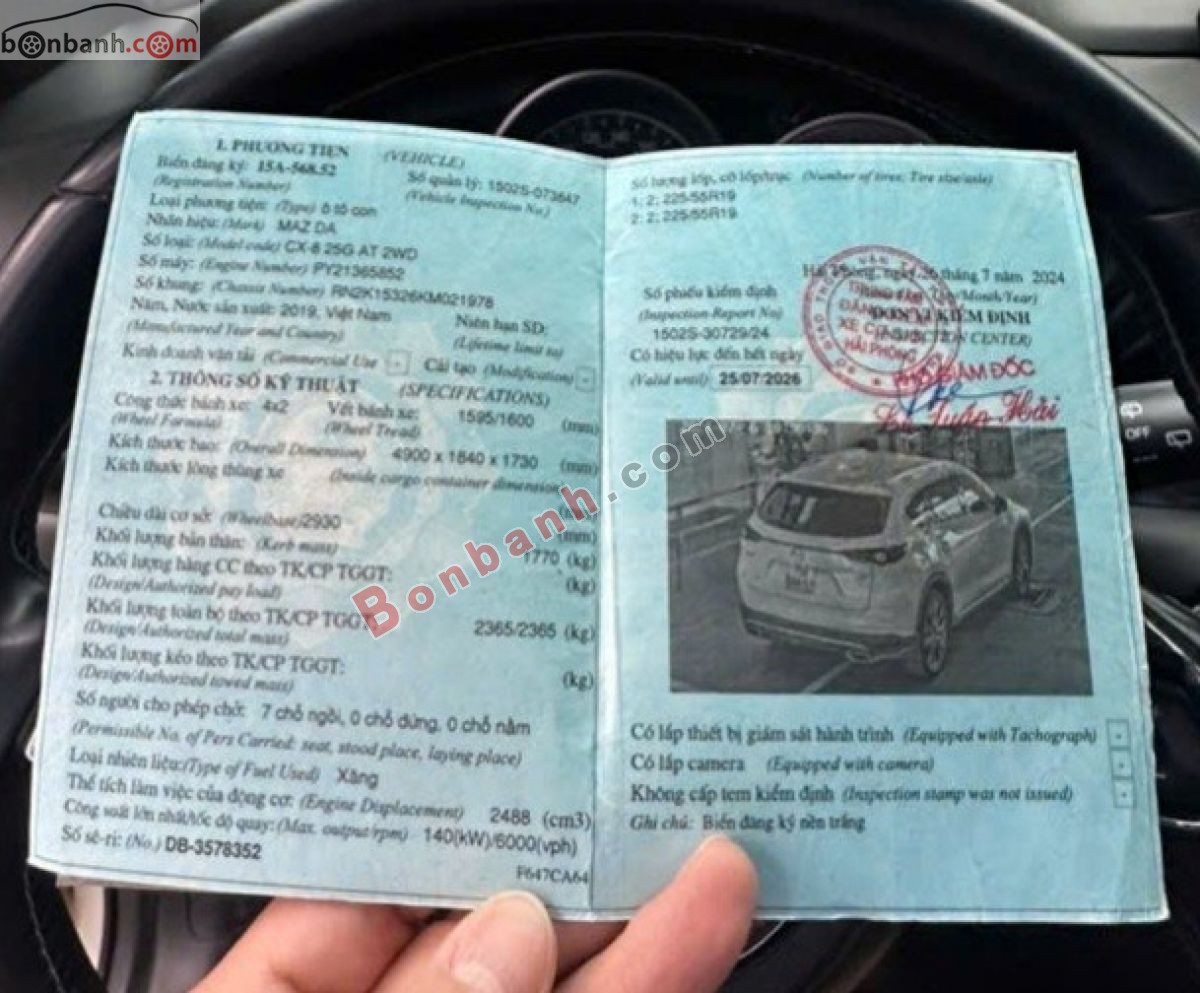 bonbanh.com
1. PHƯƠNG TIỆN (VEHICLE)
Biển đăng ký: 15A-568.52 Số quản lý: 1502S-073647
(Registration Number) (Vehicle Inspection No.)
Loại phương tiện: (Type) ô tô con
Nhãn hiệu: (Mark) MAZDA
Số loại: (Model code) CX-8 25G AT 2WD
Số máy: (Engine Number) PY21365852
Số khung: (Chassis Number) RN2K15326KM021978
Năm, Nước sản xuất: 2019, Việt Nam Niên hạn SD:
(Manufactured Year and Country) (Lifetime limit to)
Kinh doanh vận tải (Commercial Use) - Cải tạo (Modification) -
2. THÔNG SỐ KỸ THUẬT (SPECIFICATIONS)
Công thức bánh xe: 4x2 Vết bánh xe: 1595/1600 (mm)
(Wheel Formula) (Wheel Tread)
Kích thước bao: (Overall Dimension) 4900 x 1840 x 1730 (mm)
Kích thước lòng thùng xe (Inside cargo container dimension)
(mm)
Chiều dài cơ sở: (Wheelbase) 2930 (mm)
Khối lượng bản thân: (Kerb mass) 1770 (kg)
Khối lượng hàng CC theo TK/CP TGGT: (kg)
(Design/Authorized pay load)
Khối lượng toàn bộ theo TK/CP TGGT: 2365/2365 (kg)
(Design/Authorized total mass)
Khối lượng kéo theo TK/CP TGGT: (kg)
(Design/Authorized towed mass)
Số người cho phép chở: 7 chỗ ngồi, 0 chỗ đứng, 0 chỗ nằm
(Permissible No. of Pers Carried: seat, stood place, laying place)
Loại nhiên liệu:(Type of Fuel Used) Xăng
Thể tích làm việc của động cơ: (Engine Displacement) 2488 (cm3)
Công suất lớn nhất/tốc độ quay: (Max. output/rpm) 140(kW)/6000(vph)
Số sê-ri: (No.) DB-3578352
F647CA64
Số lượng lốp, cỡ lốp/trục (Number of tires; Tire size/axle)
1: 2; 225/55R19
2: 2; 225/55R19
Hải Phòng, ngày 26 tháng 7 năm 2024
Số phiếu kiểm định (Day/Month/Year)
(Inspection Report No) ĐƠN VỊ KIỂM ĐỊNH
1502S-30729/24 (INSPECTION CENTER)
Có hiệu lực đến hết ngày
(Valid until) 25/07/2026
PHÓ GIÁM ĐỐC
TRUNG TÂM
ĐĂNG
XE CƠ
HẢI PHÒNG
Tuấn Hải
Bonbanh.com
Có lắp thiết bị giám sát hành trình (Equipped with Tachograph) -
Có lắp camera (Equipped with camera) -
Không cấp tem kiểm định (Inspection stamp was not issued) -
Ghi chú: Biển đăng ký nền trắng
OFF